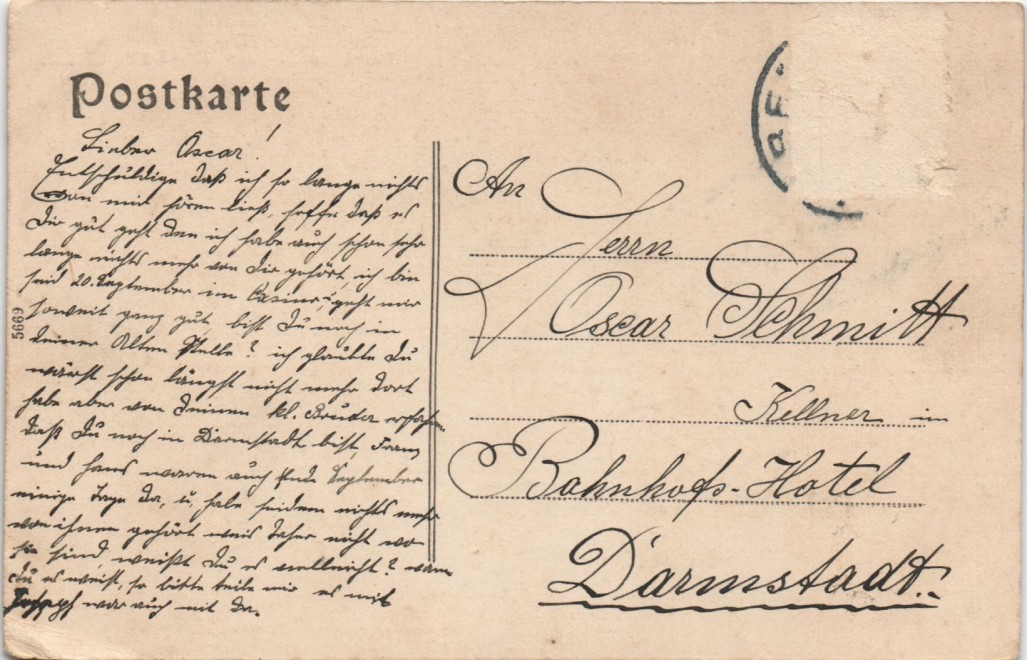 Postkarte
Lieber Oscar!
Entschuldige daß ich so lange nichts
von mir hören ließ, hoffe daß es
Dir gut geht den ich habe auch schon sehr
lange nichts mehr von Dir gehört, ich bin
seid 20. September im Casino, geht mir
soweit ganz gut, bist Du noch in
deiner Alten Stelle? ich glaubte Du
wärst schon längst nicht mehr dort
habe aber von deinem kl. Bruder erfahren
daß Du noch in Darmstadt bist, Franz
und Hans waren auch Ende September
einige Tage da, u. habe seidem nichts mehr
von ihnen gehört weis daher nicht wo
sie sind, weißt Du es vielleicht? wenn
Du es weist, so bitte teile mir es mit
Joseph war auch mit da.
5669
An
Herrn
Oscar Schmitt
Kellner in
Bahnhofs-Hotel
Darmstadt.